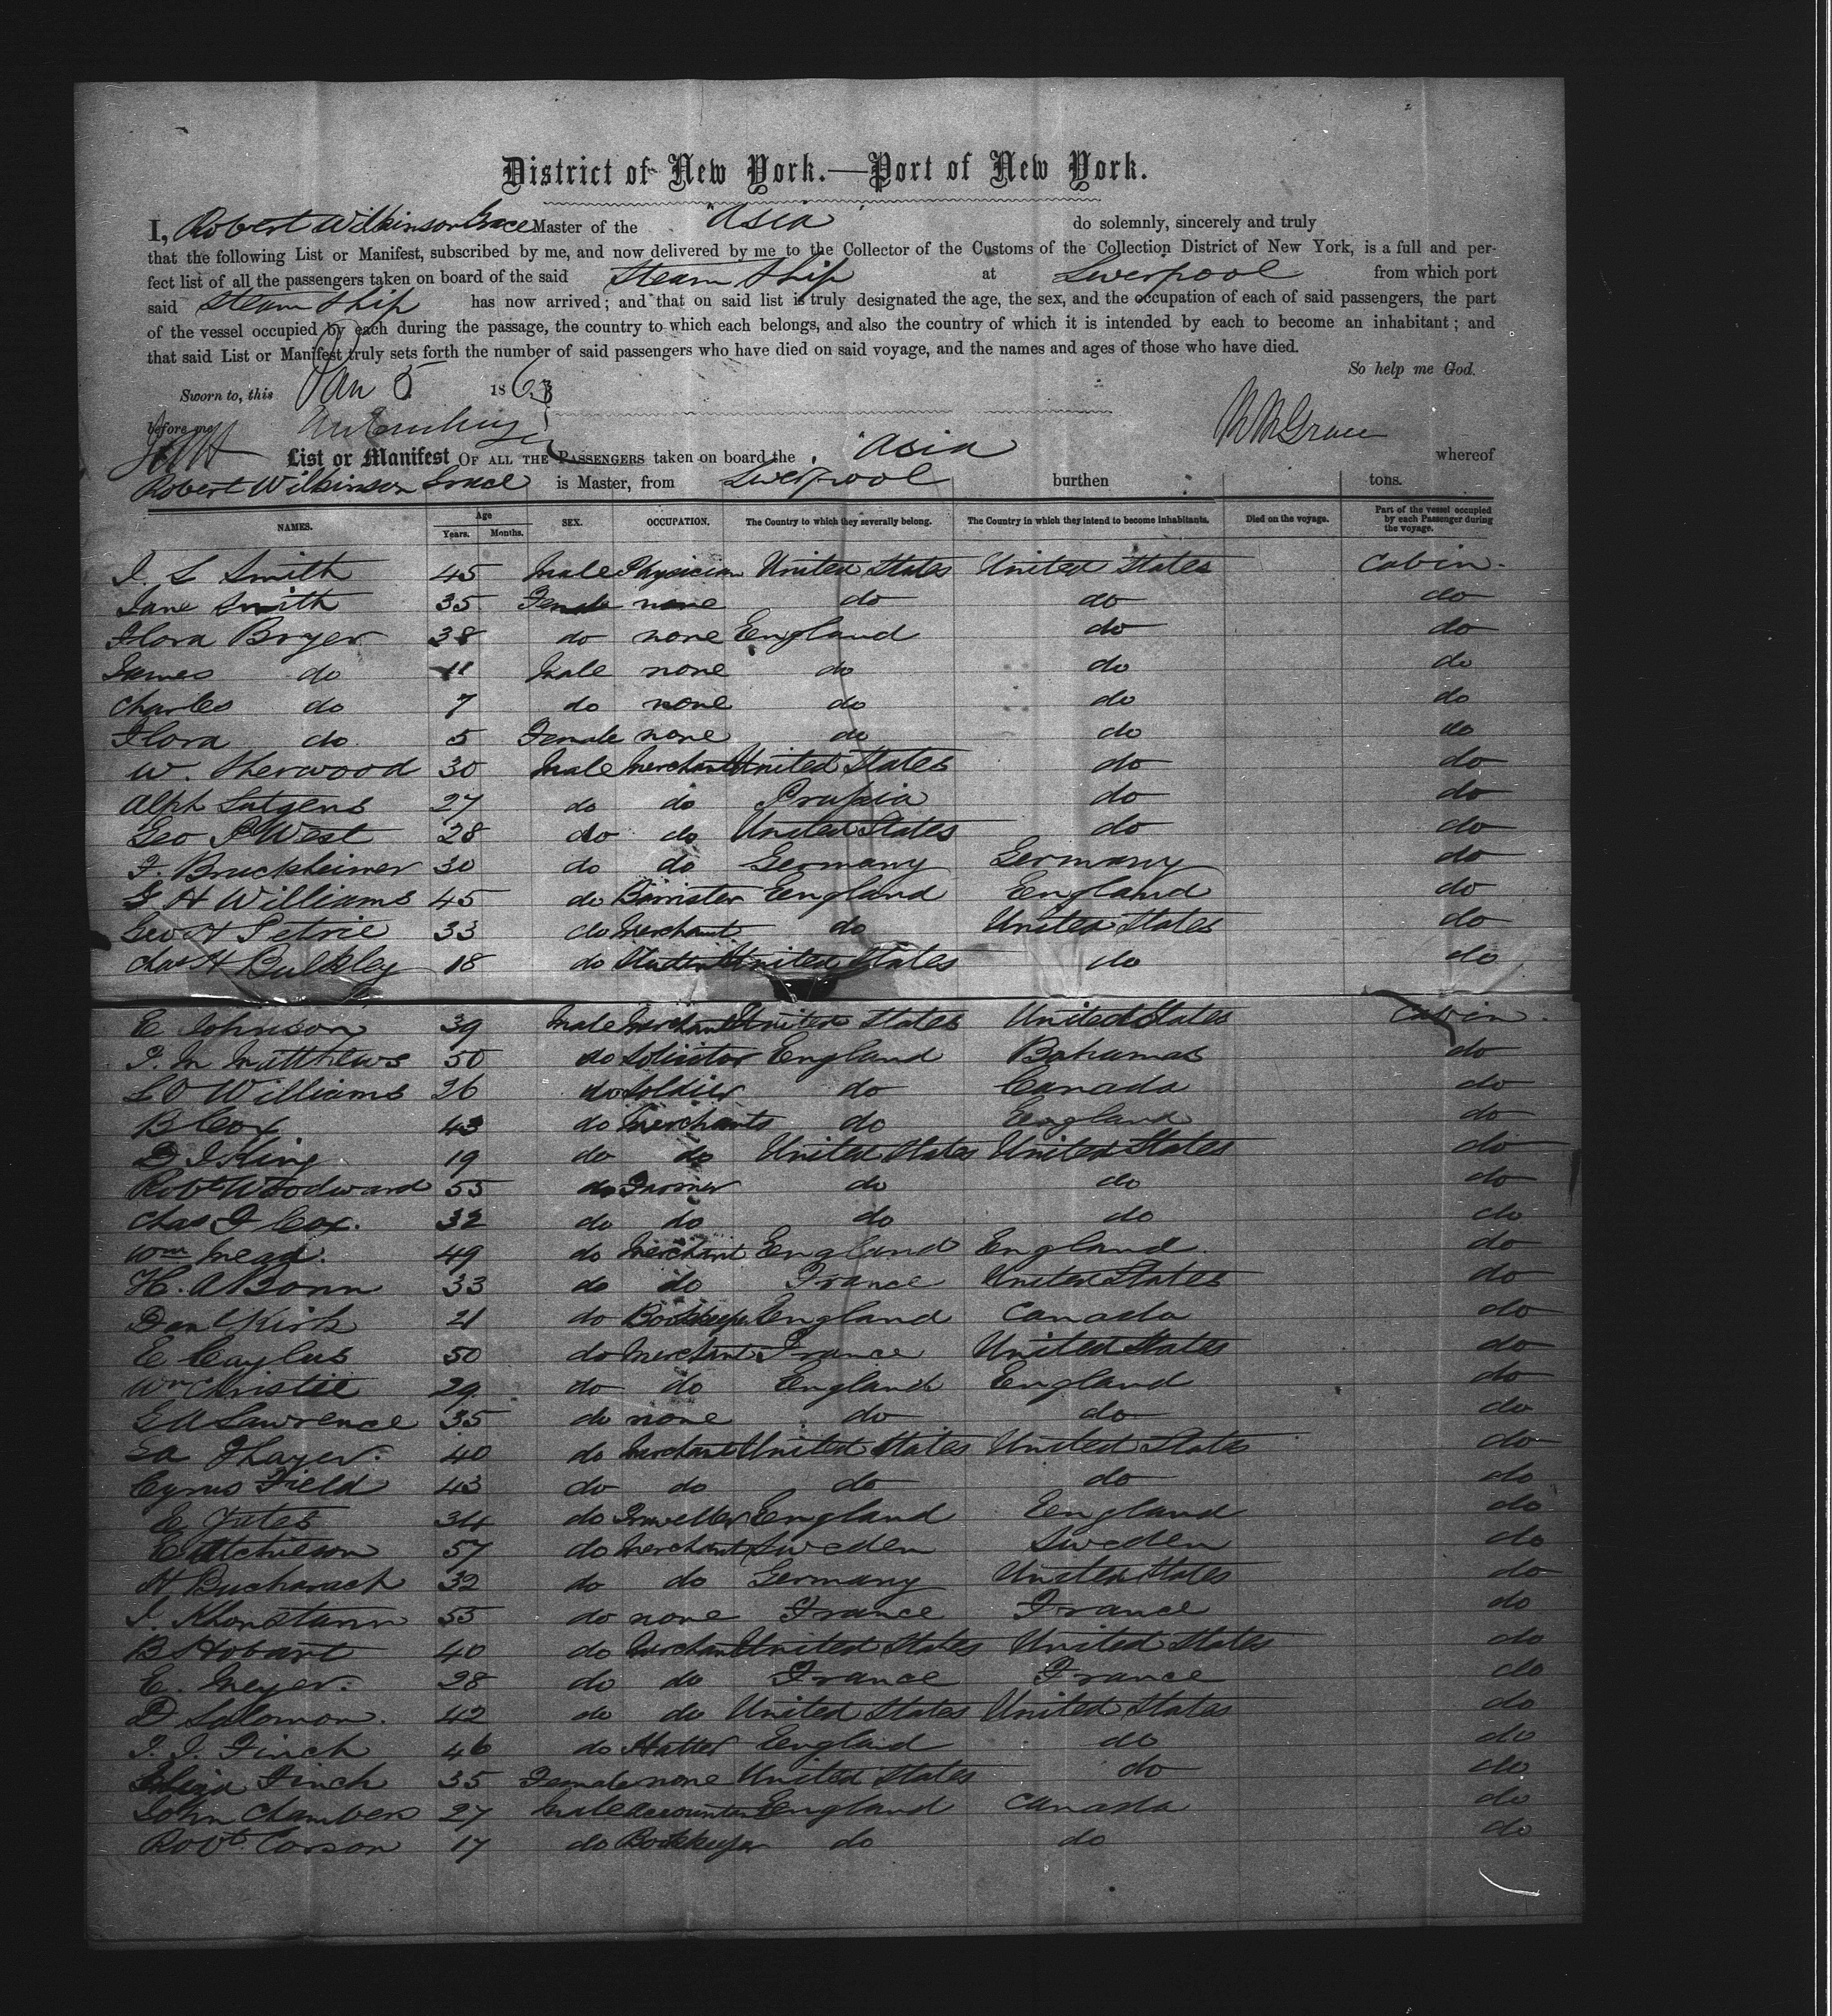 District of New York.—Port of New York.
I, Robert Wilkinson Grace Master of the Asia do solemnly, sincerely and truly
that the following List or Manifest, subscribed by me, and now delivered by me to the Collector of the Customs of the Collection District of New York, is a full and per-
fect list of all the passengers taken on board of the said Steam Ship at Liverpool from which port
said Steam Ship has now arrived; and that on said list is truly designated the age, the sex, and the occupation of each of said passengers, the part
of the vessel occupied by each during the passage, the country to which each belongs, and also the country of which it is intended by each to become an inhabitant; and
that said List or Manifest truly sets forth the number of said passengers who have died on said voyage, and the names and ages of those who have died.
So help me God.
Sworn to, this Jan 5 1863
before me
List or Manifest OF ALL THE PASSENGERS taken on board the Asia whereof
Robert Wilkinson Grace is Master, from Liverpool burthen tons.
NAMES. Age Years. Months. SEX. OCCUPATION. The Country to which they severally belong. The Country in which they intend to become inhabitants. Died on the voyage. Part of the vessel occupied by each Passenger during the voyage.
I. L Smith 45 Male Physician United States United States Cabin.
Jane Smith 35 Female none do do do
Flora Boyer 38 do none England do do
James do 11 Male none do do do
Charles do 7 do none do do do
Flora do 5 Female none do do do
W. Sherwood 30 Male Merchant United States do do
Alph Lutgens 27 do do Prussia do do
Geo P West 28 do do United States do do
F. Bruckheimer 30 do do Germany Germany do
G H Williams 45 do Barrister England England do
Geo H Petrie 33 do Merchant do United States do
Chas H Bulkley 18 do Student United States do do
E Johnson 39 Male Merchant United States United States Cabin.
T. M Matthews 50 do Solicitor England Bahamas do
L O Williams 26 do Soldier do Canada do
B Cox 43 do Merchants do England do
D I King 19 do do United States United States do
Robt Woodward 55 do Farmer do do do
Chas I Cox. 32 do do do do do
Wm Mead. 49 do Merchant England England. do
H. A Bonn 33 do do France United States do
Dan Kirk 21 do Bookkeeper England Canada do
E Caylus 50 do Merchant France United States do
Wm Christie 29 do do England England do
G A Lawrence 35 do none do do do
Ea Thayer. 40 do Merchant United States United States do
Cyrus Field 43 do do do do do
E Yates 34 do Traveller England England do
E Atchieson 57 do Merchant Sweden Sweden do
H Bucharach 32 do do Germany United States do
I. Khonstamn 55 do none France France do
B Hobart 40 do Merchant United States United States do
E. Meyer. 28 do do France France do
D Solomon. 42 do do United States United States do
I. I. Finch 46 do Hatter England do do
Finch 35 Female none United States do do
John Chambers 27 Male Accountant England Canada do
Robt. Corson 17 do Bookkeeper do do do